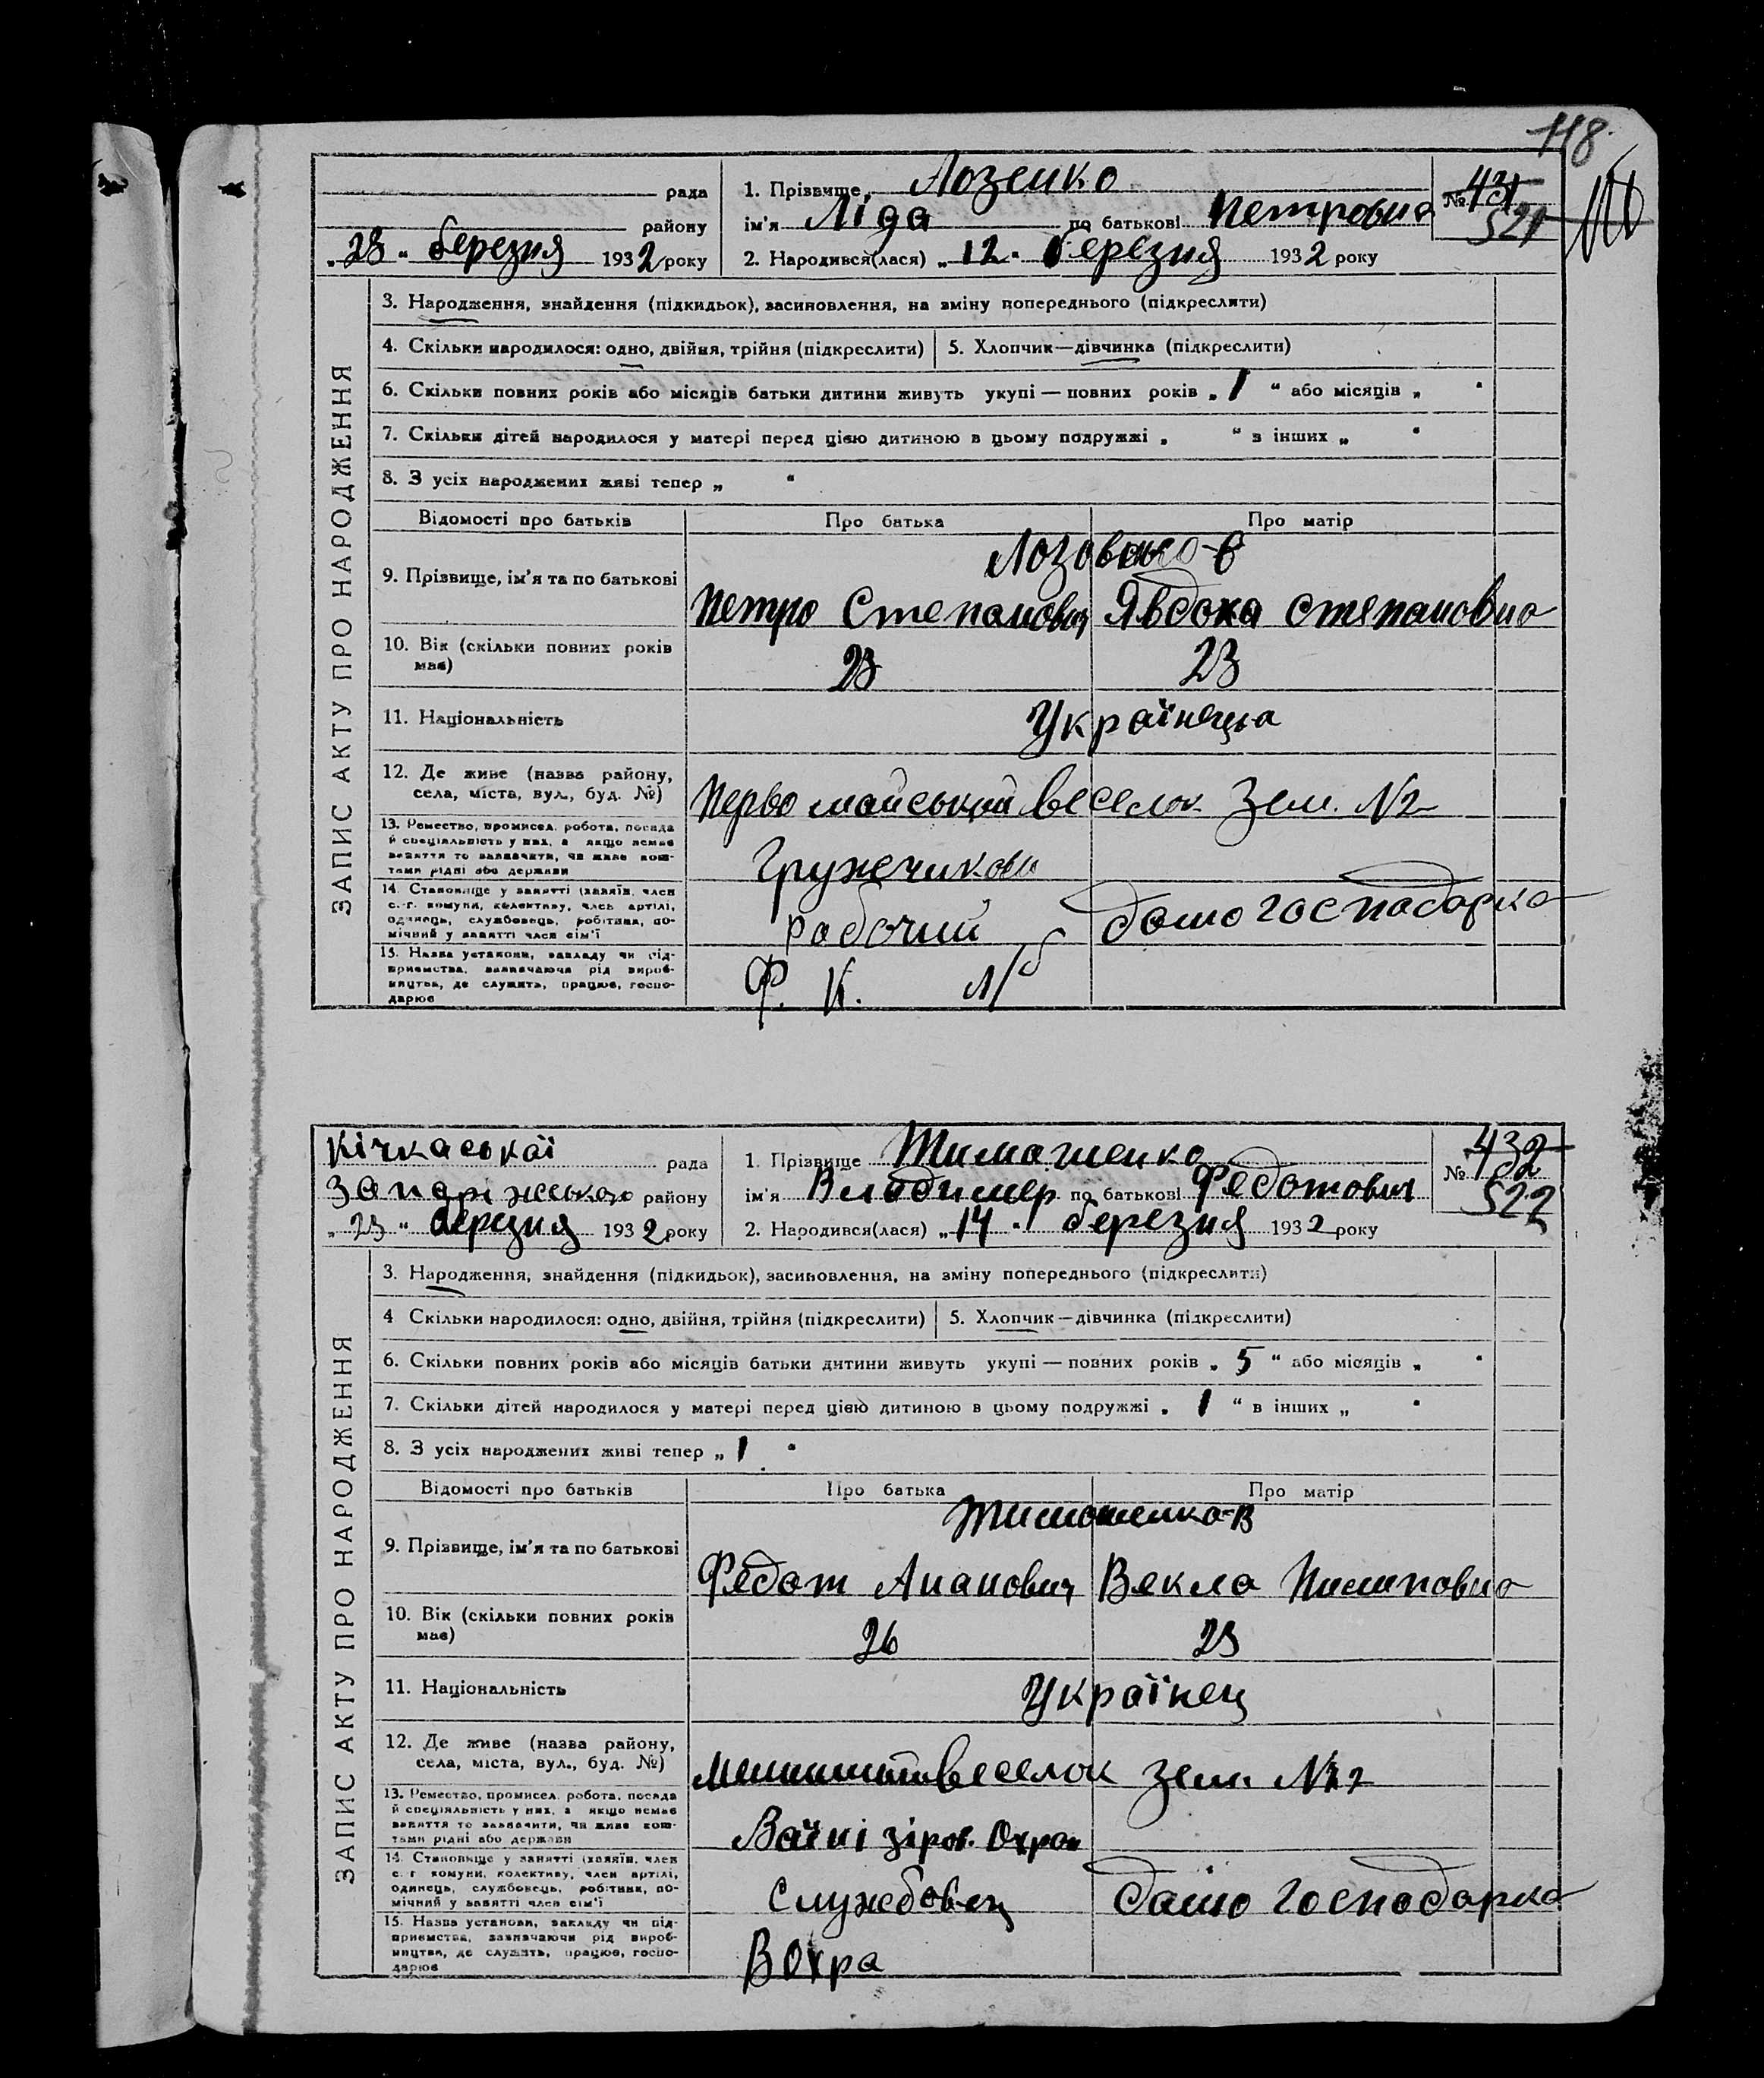 118
рада
1. Прізвище Лозенко
№ 431
521
району
ім'я Ліда по батькові Петровна
„23“ березня 1932 року
2. Народився(лася) „12“ березня 1932 року
ЗАПИС АКТУ ПРО НАРОДЖЕННЯ
3. Народження, знайдення (підкидьок), засиновлення, на зміну попереднього (підкреслити)
4. Скільки народилося: одно, двійня, трійня (підкреслити) 5. Хлопчик—дівчинка (підкреслити)
6. Скільки повних років або місяців батьки дитини живуть укупі — повних років „1“ або місяців „ “
7. Скільки дітей народилося у матері перед цією дитиною в цьому подружжі „ “ в інших „ “
8. З усіх народжених живі тепер „ “
Відомості про батьків Про батька Про матір
9. Прізвище, ім'я та по батькові
Петро Степанович Явдоха Степановна
10. Вік (скільки повних років має) 23 23
11. Національність Українець
12. Де живе (назва району, села, міста, вул., буд. №)
Первомайський веселок Зем. №2
13. Ремество, промисел, робота, посада й спеціяльність у них, а якщо немає заняття то зазначити, чи живе коштами рідні або держави
14. Становище у занятті (хазяїн, член с.-г. комуни, колективу, член артілі, одинець, службовець, робітник, помічний у занятті член сім'ї
рабочий домогосподарка
15. Назва установи, закладу чи підприємства, зазначаючи рід виробництва, де служить, працює, господарює
Ф. К.
Кічкаської рада
1. Прізвище Тимошенко
№ 432
522
Запоріжського району
ім'я Владимер по батькові Федотович
„23“ березня 1932 року
2. Народився(лася) „14“ березня 1932 року
ЗАПИС АКТУ ПРО НАРОДЖЕННЯ
3. Народження, знайдення (підкидьок), засиновлення, на зміну попереднього (підкреслити)
4 Скільки народилося: одно, двійня, трійня (підкреслити) 5. Хлопчик—дівчинка (підкреслити)
6. Скільки повних років або місяців батьки дитини живуть укупі — повних років „5“ або місяців „ “
7. Скільки дітей народилося у матері перед цією дитиною в цьому подружжі „1“ в інших „ “
8. З усіх народжених живі тепер „1“
Відомості про батьків Про батька Про матір
Тимошенко-в
9. Прізвище, ім'я та по батькові
Федот Ананович Векла Пилиповна
10. Вік (скільки повних років має) 26 23
11. Національність Українец
12. Де живе (назва району, села, міста, вул., буд. №)
веселок Зем. №2
13. Ремество, промисел, робота, посада й спеціяльність у них, а якщо немає заняття то зазначити, чи живе коштами рідні або держави
14. Становище у занятті (хазяїн, член с.-г. комуни, колективу, член артілі, одинець, службовець, робітник, помічний у занятті член сім'ї
Службовец домогосподарка
15. Назва установи, закладу чи підприємства, зазначаючи рід виробництва, де служить, працює, господарює
Вохра